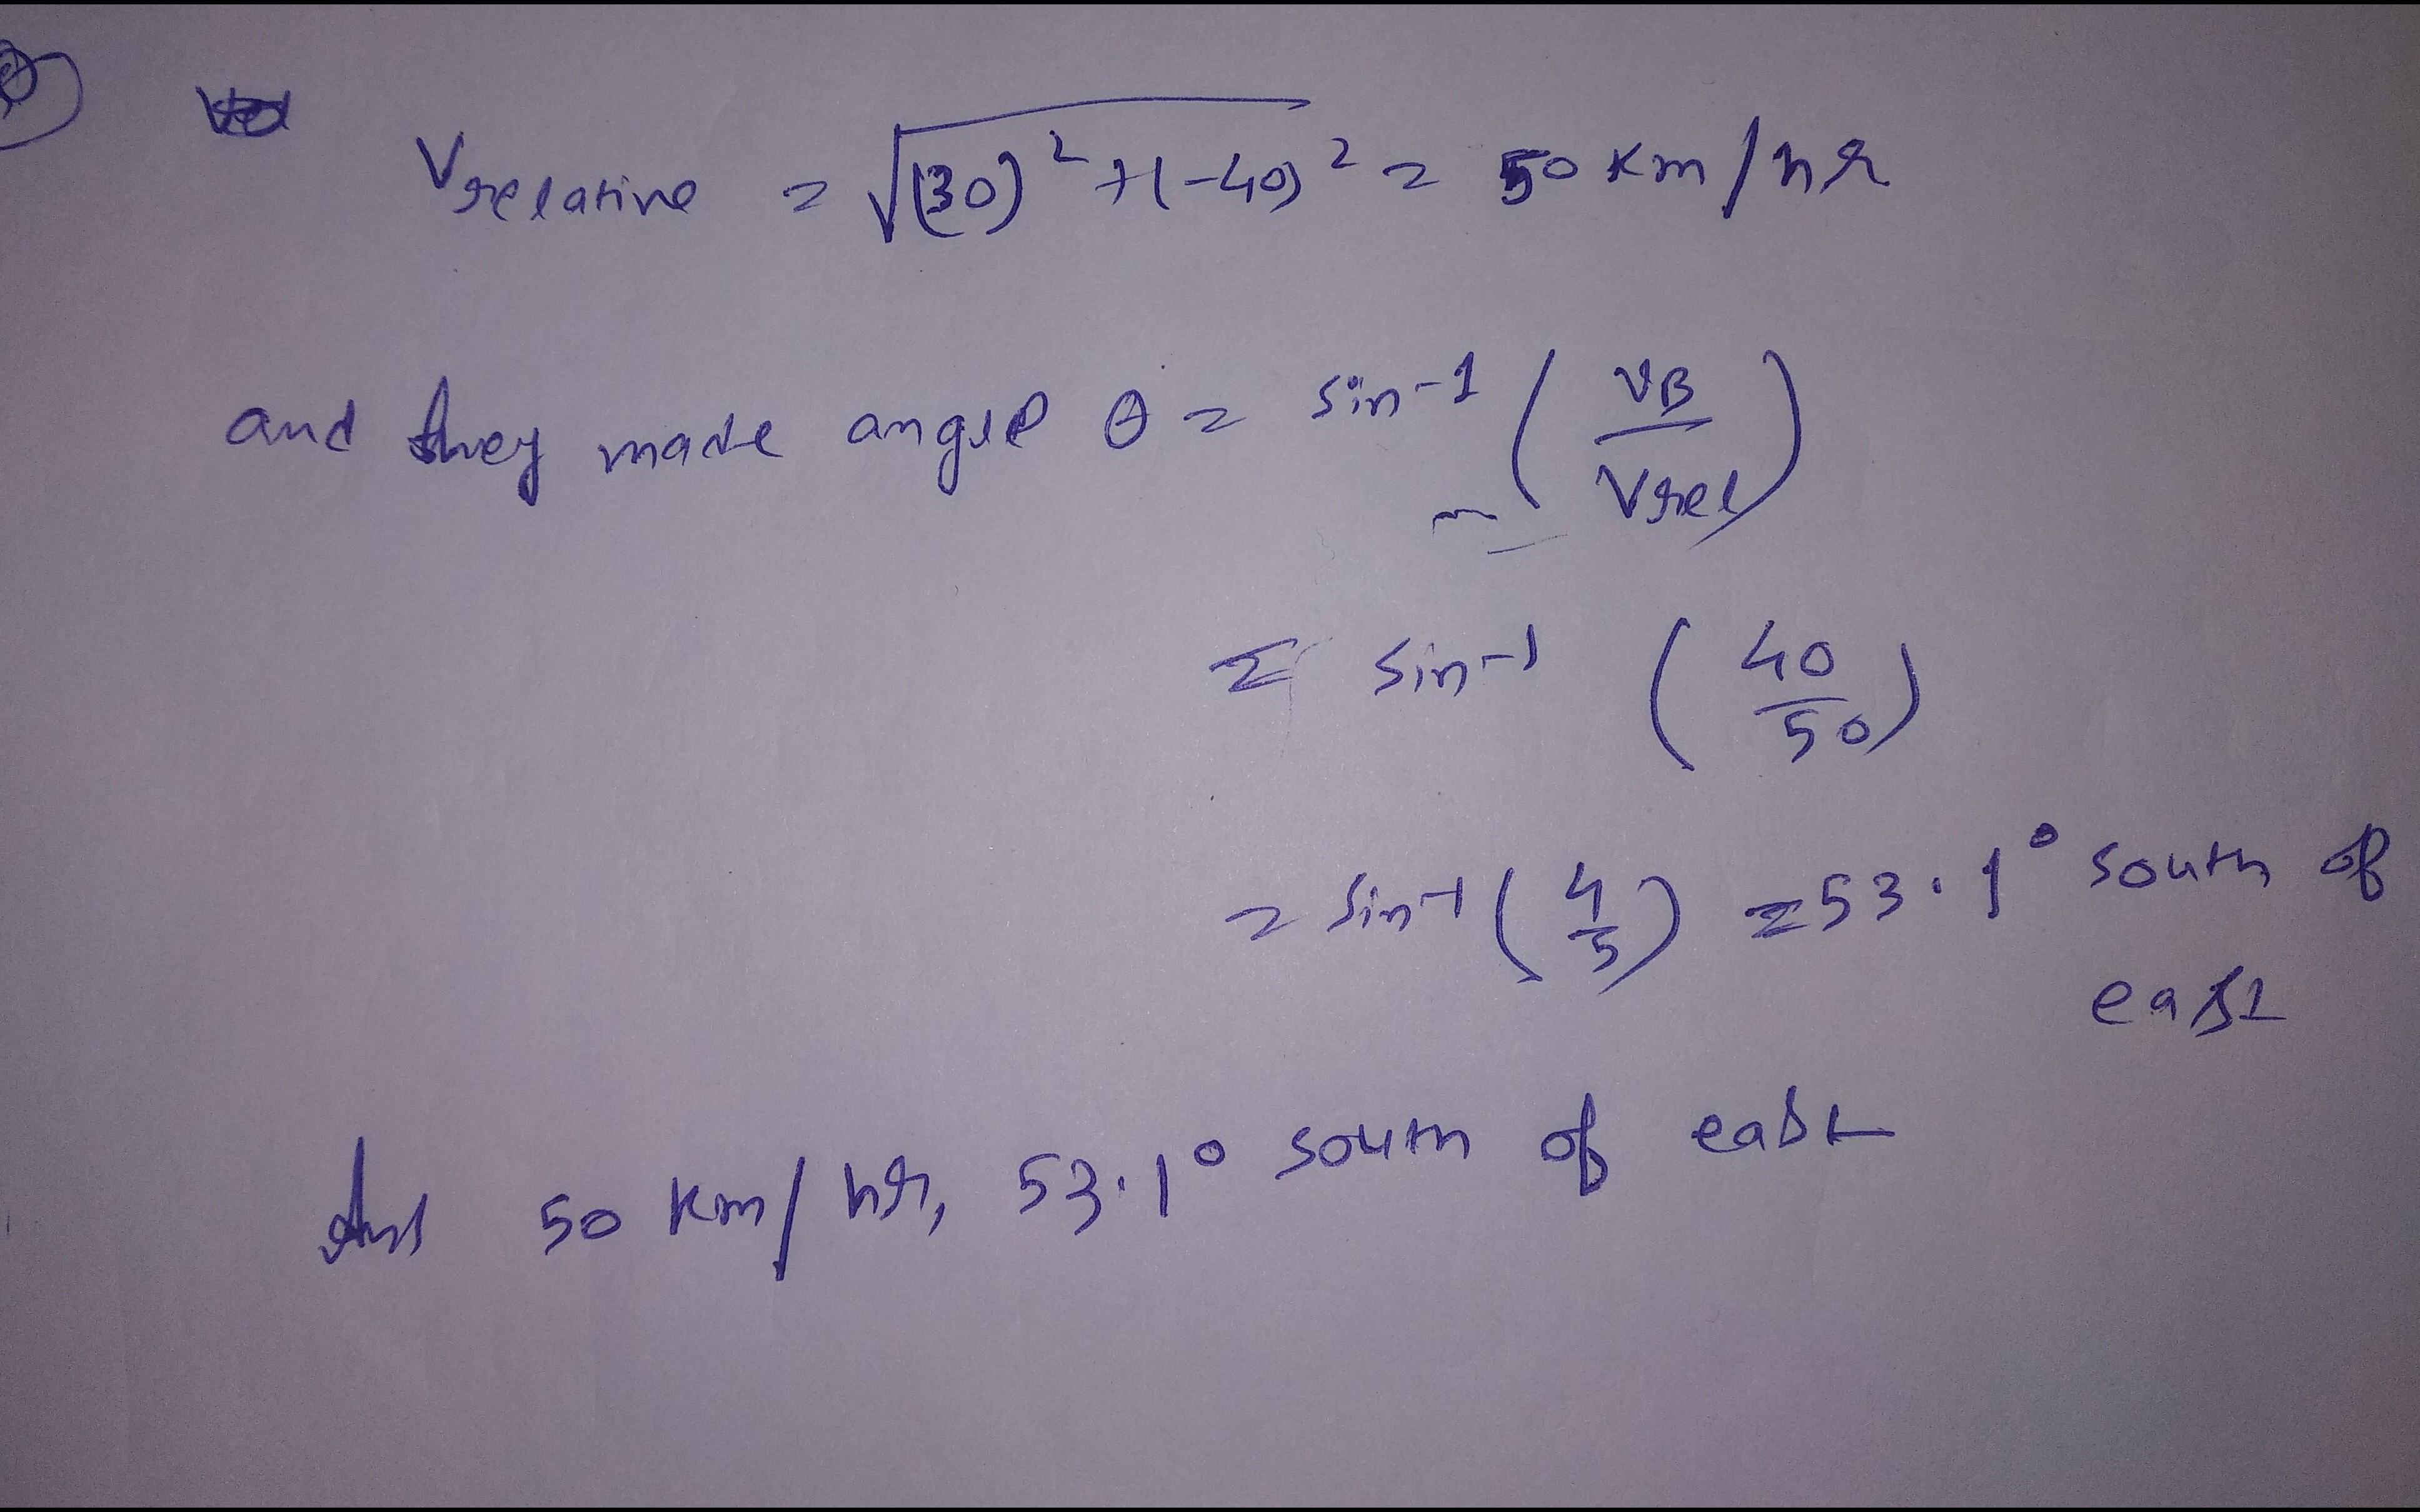 V relative = √(30)² + (-40)² = 50 km/hr
and they made angle θ = sin-1 (VB / Vrel)
= sin-1 (40 / 50)
= sin-1 (4/5) = 53.1° south of
east
Ans 50 km/hr, 53.1° south of east